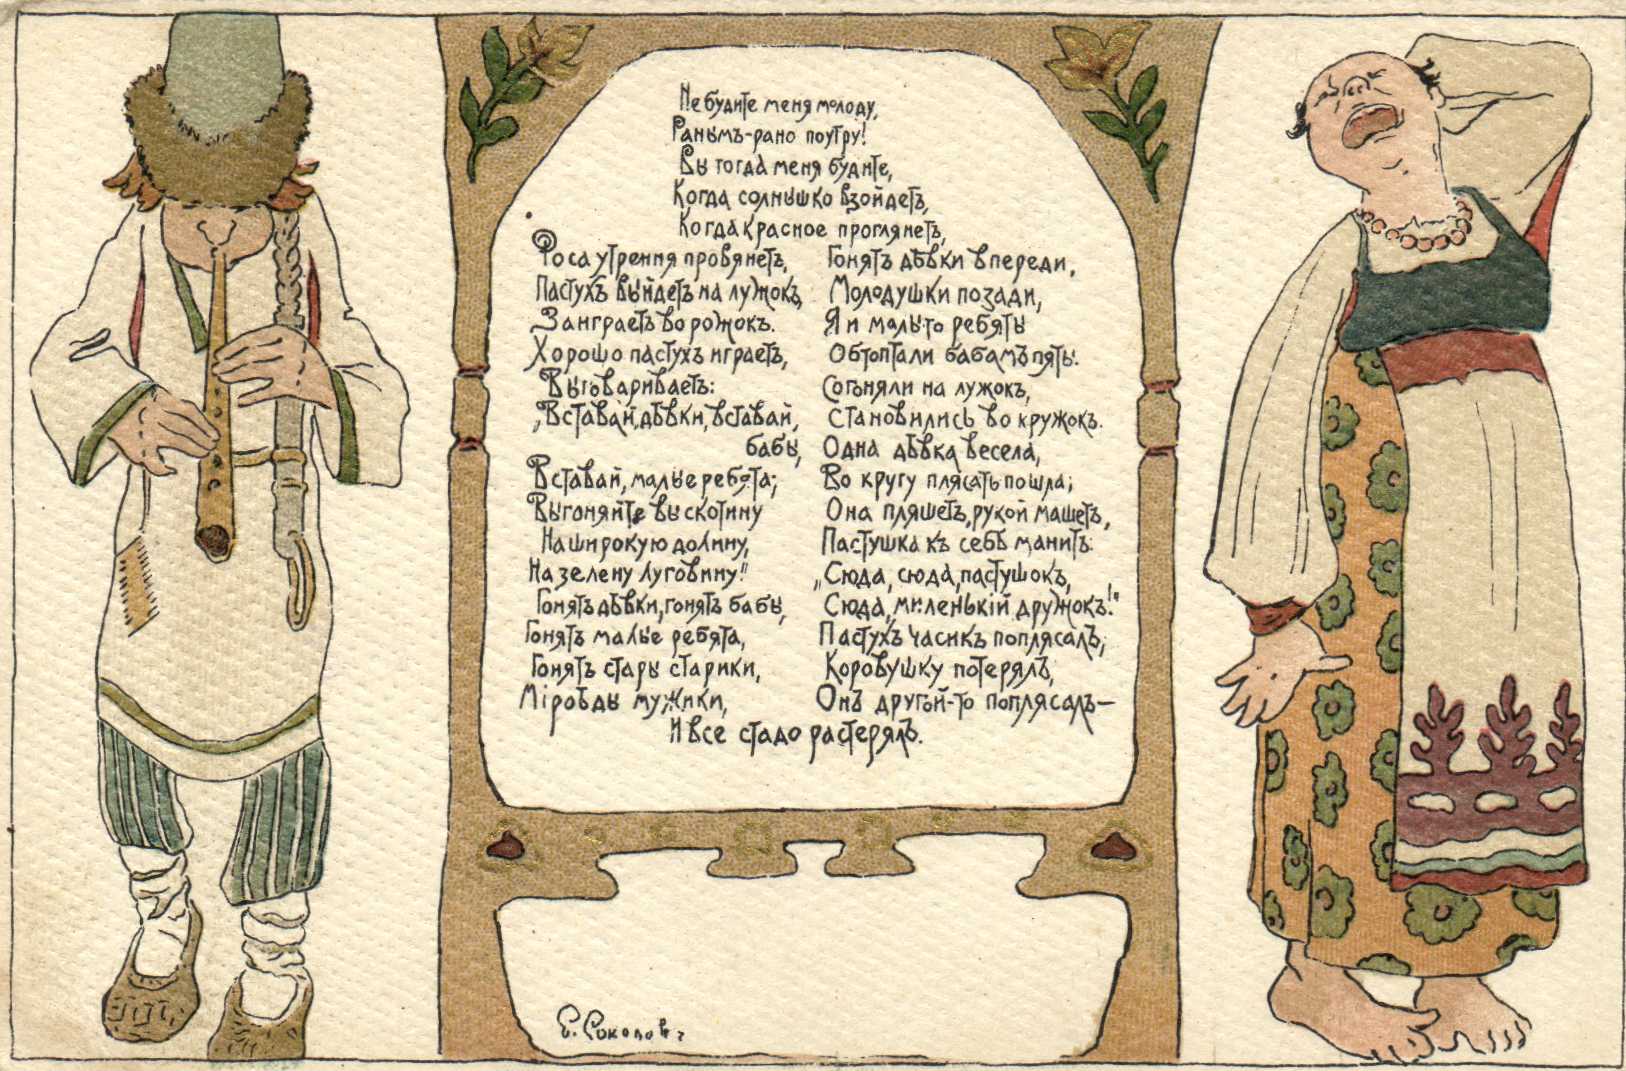 Не будите меня молоду,
Ранымъ-рано поутру!
Вы тогда меня будите,
Когда солнышко взойдетъ,
Когда красное проглянетъ,
Роса утрення провянетъ,
Пастухъ выйдетъ на лужокъ,
Заиграетъ во рожокъ.
Хорошо пастухъ играетъ,
Выговариваетъ:
„Вставай, дѣвки, вставай,
бабы,
Вставай, малые ребята;
Выгоняйте вы скотину
На широкую долину,
На зелену луговину!"
Гонятъ дѣвки, гонятъ бабы,
Гонятъ малые ребята,
Гонятъ стары старики,
Міроѣды мужики,
Гонятъ дѣвки впереди,
Молодушки позади,
А и малы-то ребяты
Обтоптали бабамъ пяты.
Согоняли на лужокъ,
Становились во кружокъ.
Одна дѣвка весела,
Во кругу плясать пошла;
Она пляшетъ, рукой машетъ,
Пастушка къ себѣ манитъ:
„Сюда, сюда, пастушокъ,
Сюда, миленькій дружокъ!"
Пастухъ часикъ поплясалъ,
Коровушку потерялъ,
Онъ другой-то поплясалъ—
И все стадо растерялъ.
Е. Соколовъ